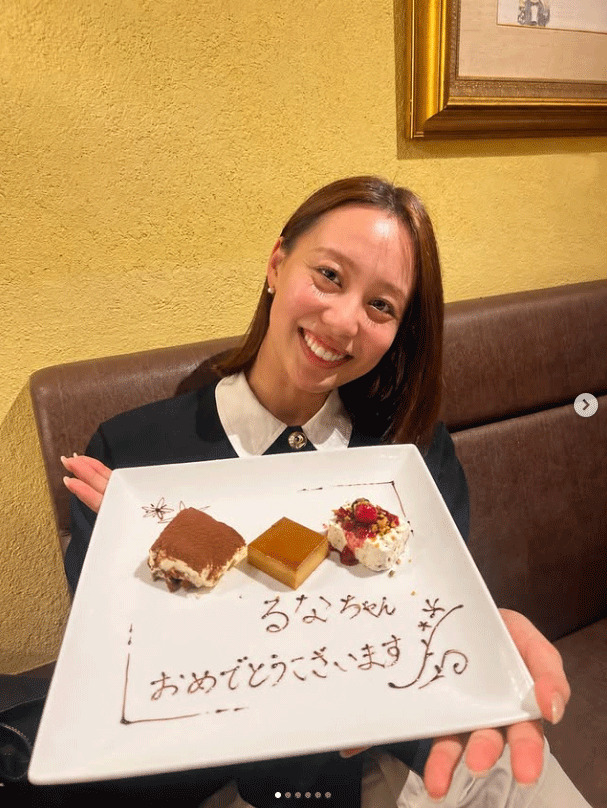 るなちゃん
おめでとうございます